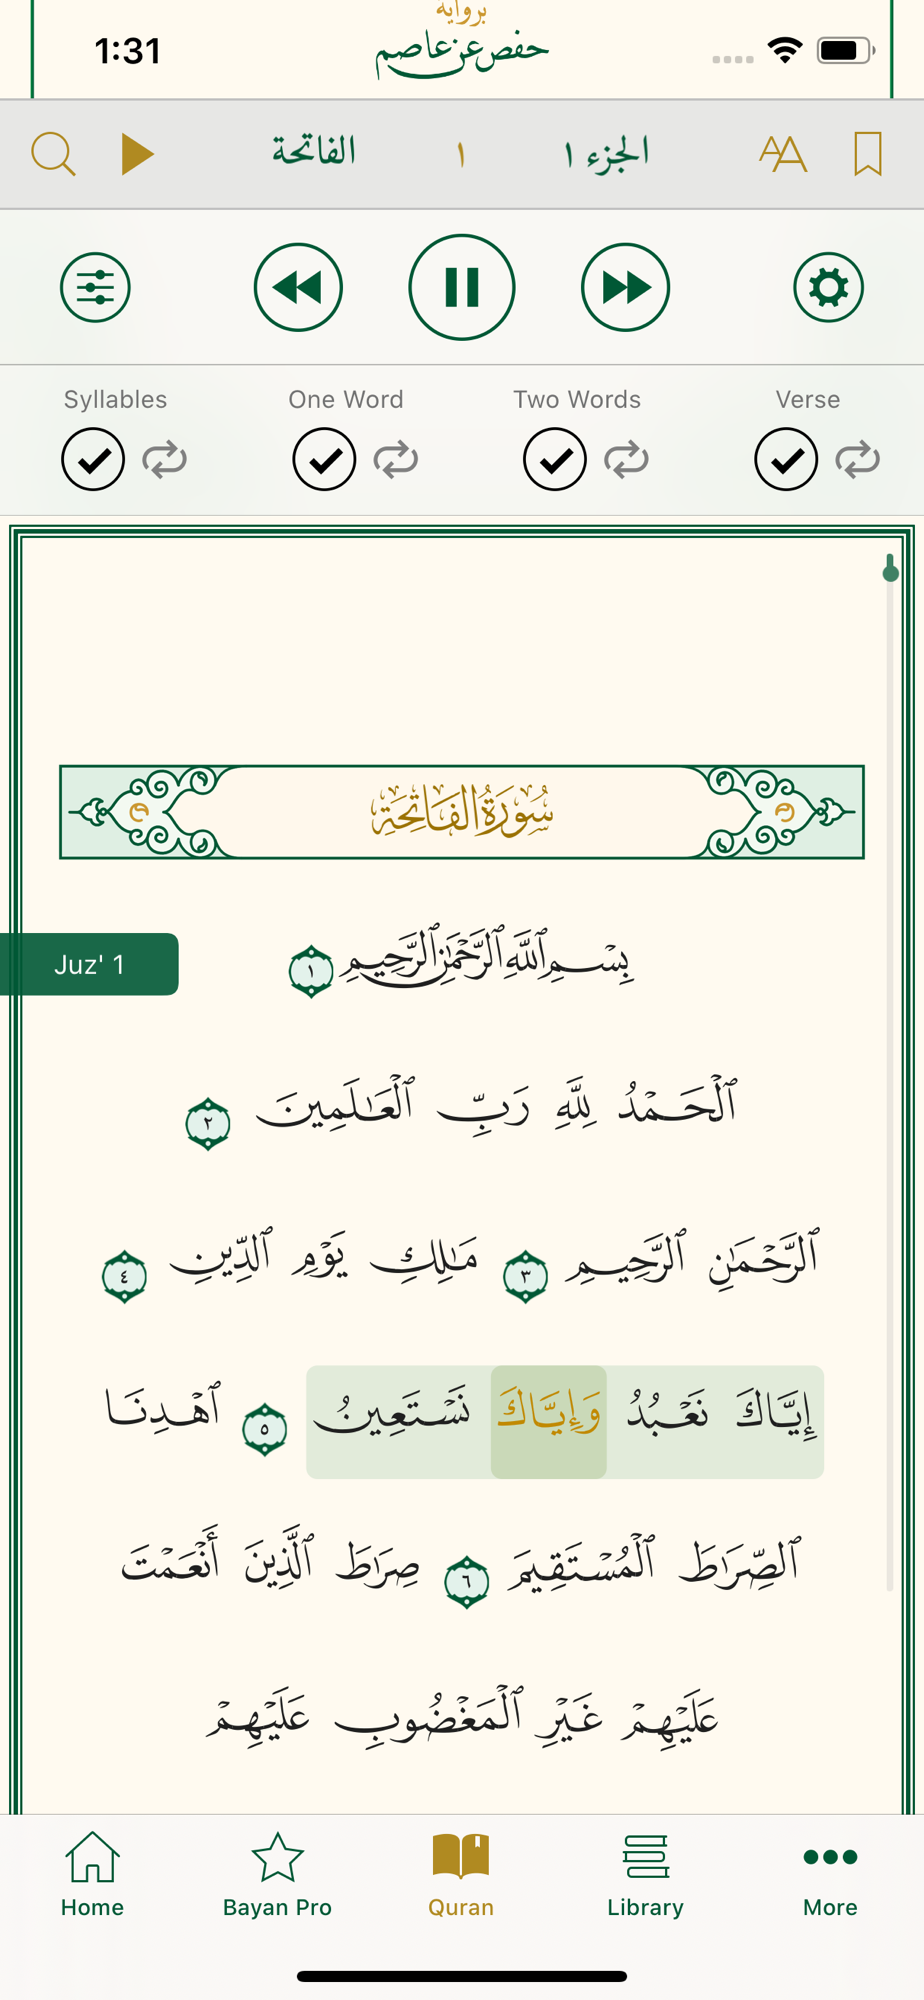 برواية
حفص عن عاصم
1:31
الفاتحة ١ الجزء ١
Syllables One Word Two Words Verse
سُورَةُ الفَاتِحَةِ
Juz' 1
بِسْمِ ٱللَّهِ ٱلرَّحْمَٰنِ ٱلرَّحِيمِ ١
ٱلْحَمْدُ لِلَّهِ رَبِّ ٱلْعَٰلَمِينَ ٢
ٱلرَّحْمَٰنِ ٱلرَّحِيمِ ٣ مَٰلِكِ يَوْمِ ٱلدِّينِ ٤
إِيَّاكَ نَعْبُدُ وَإِيَّاكَ نَسْتَعِينُ ٥ ٱهْدِنَا
ٱلصِّرَٰطَ ٱلْمُسْتَقِيمَ ٦ صِرَٰطَ ٱلَّذِينَ أَنْعَمْتَ
عَلَيْهِمْ غَيْرِ ٱلْمَغْضُوبِ عَلَيْهِمْ
Home Bayan Pro Quran Library More